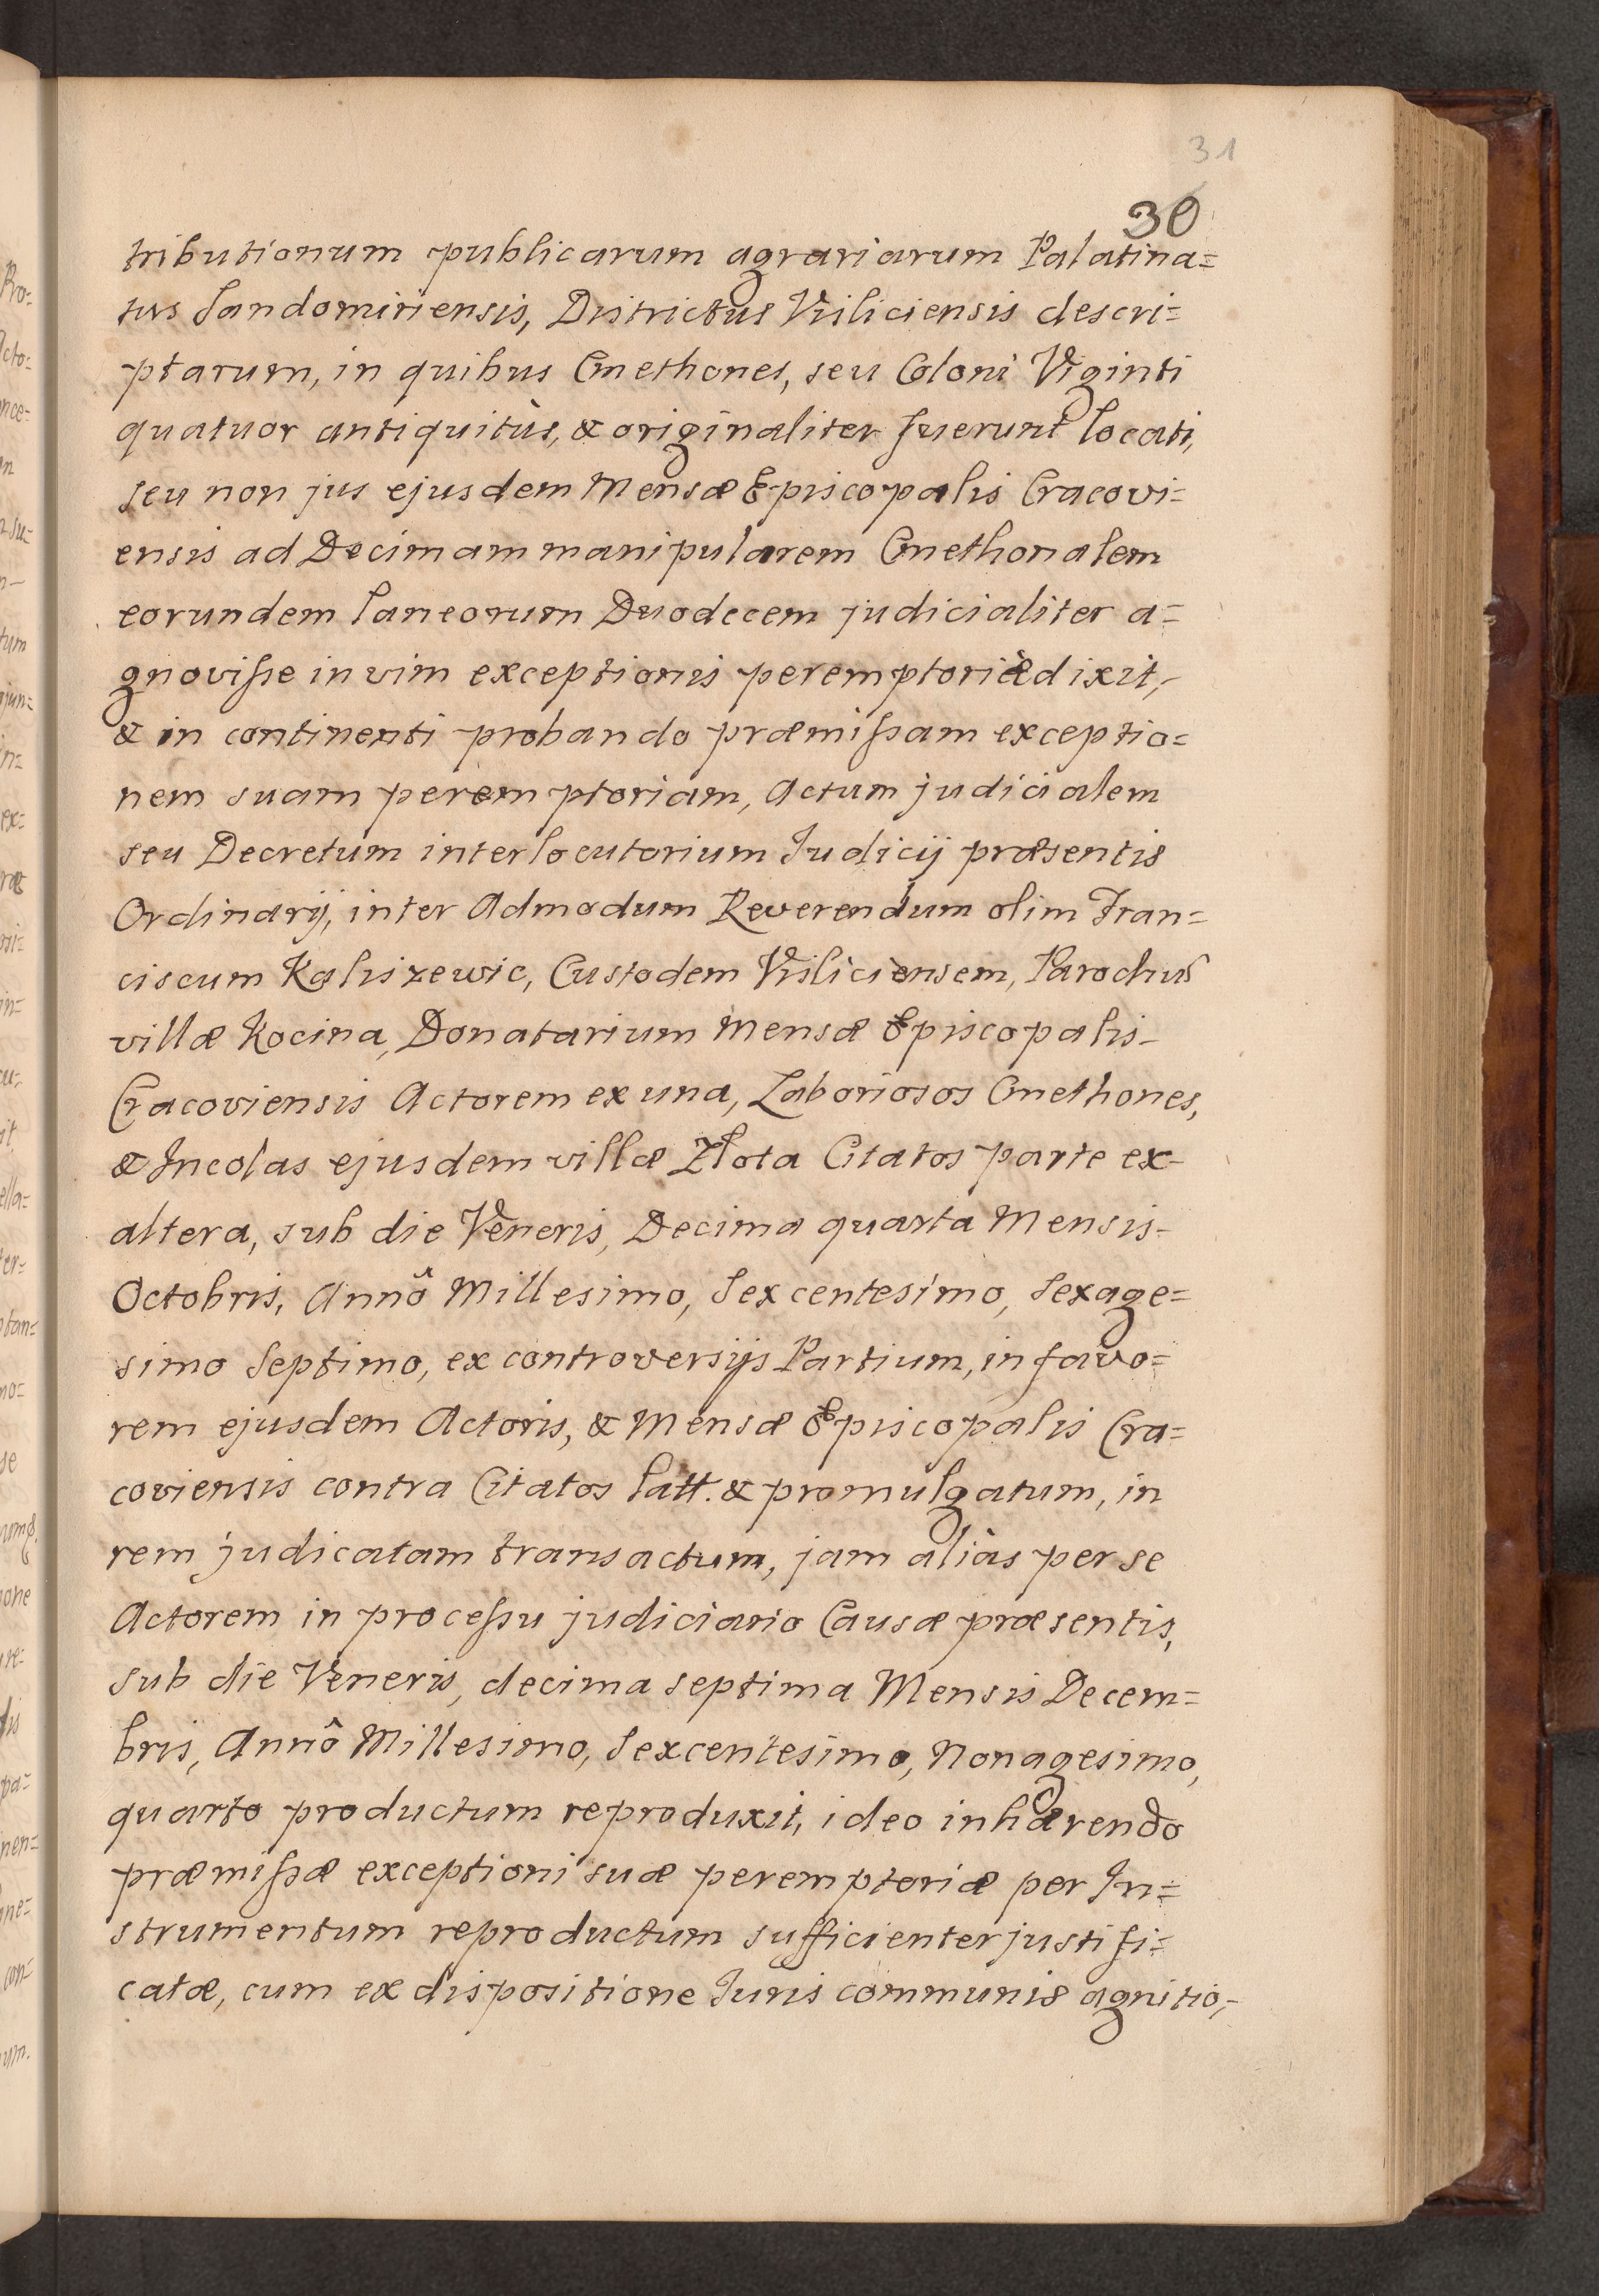 31
30
tributionum publicarum agrariarum Palatina=
tus Sandomiriensis, Districtus Visliciensis descri=
ptarum, in quibus Cmethones, seu Coloni Viginti
quatuor antiquitùs, & originaliter fuerunt locati,
seu non jus ejusdem Mensæ Episcopalis Cracovi=
ensis ad Decimam manipularem Cmethonalem
eorundem laneorum Duodecem judicialiter a=
gnovisse in vim exceptionis peremptoriæ dixit,-
& in continenti probando præmissam exceptio=
nem suam peremptoriam, Actum judicialem
seu Decretum interlocutorium Judicij præsentis
Ordinarij, inter Admodum Reverendum olim Fran=
ciscum Kaliszewic, Custodem Visliciensem, Parochũ
villæ Kocina, Donatarium Mensæ Episcopalis-
Cracoviensis Actorem ex una, Laboriosos Cmethones,
& Incolas ejusdem villæ Złota Citatos parte ex-
altera, sub die Veneris, Decima quarta Mensis-
Octobris, Annô Millesimo, Sexcentesimo, Sexage=
simo Septimo, ex controversijs Partium, in favo=
rem ejusdem Actoris, & Mensæ Episcopalis Cra=
coviensis contra Citatos latt. & promulgatum, in
rem judicatam transactum, jam aliàs per se
Actorem in processu judiciario Causæ præsentis,
sub die Veneris, decima septima Mensis Decem=
bris, Annô Millesimo, Sexcentesimo, Nonagesimo,
quarto productum reproduxit, ideo inhærendo
præmissæ exceptioni suæ peremptoriæ per In=
strumentum reproductum sufficienter justifi=
catæ, cum ex dispositione Juris communis agnitio,-